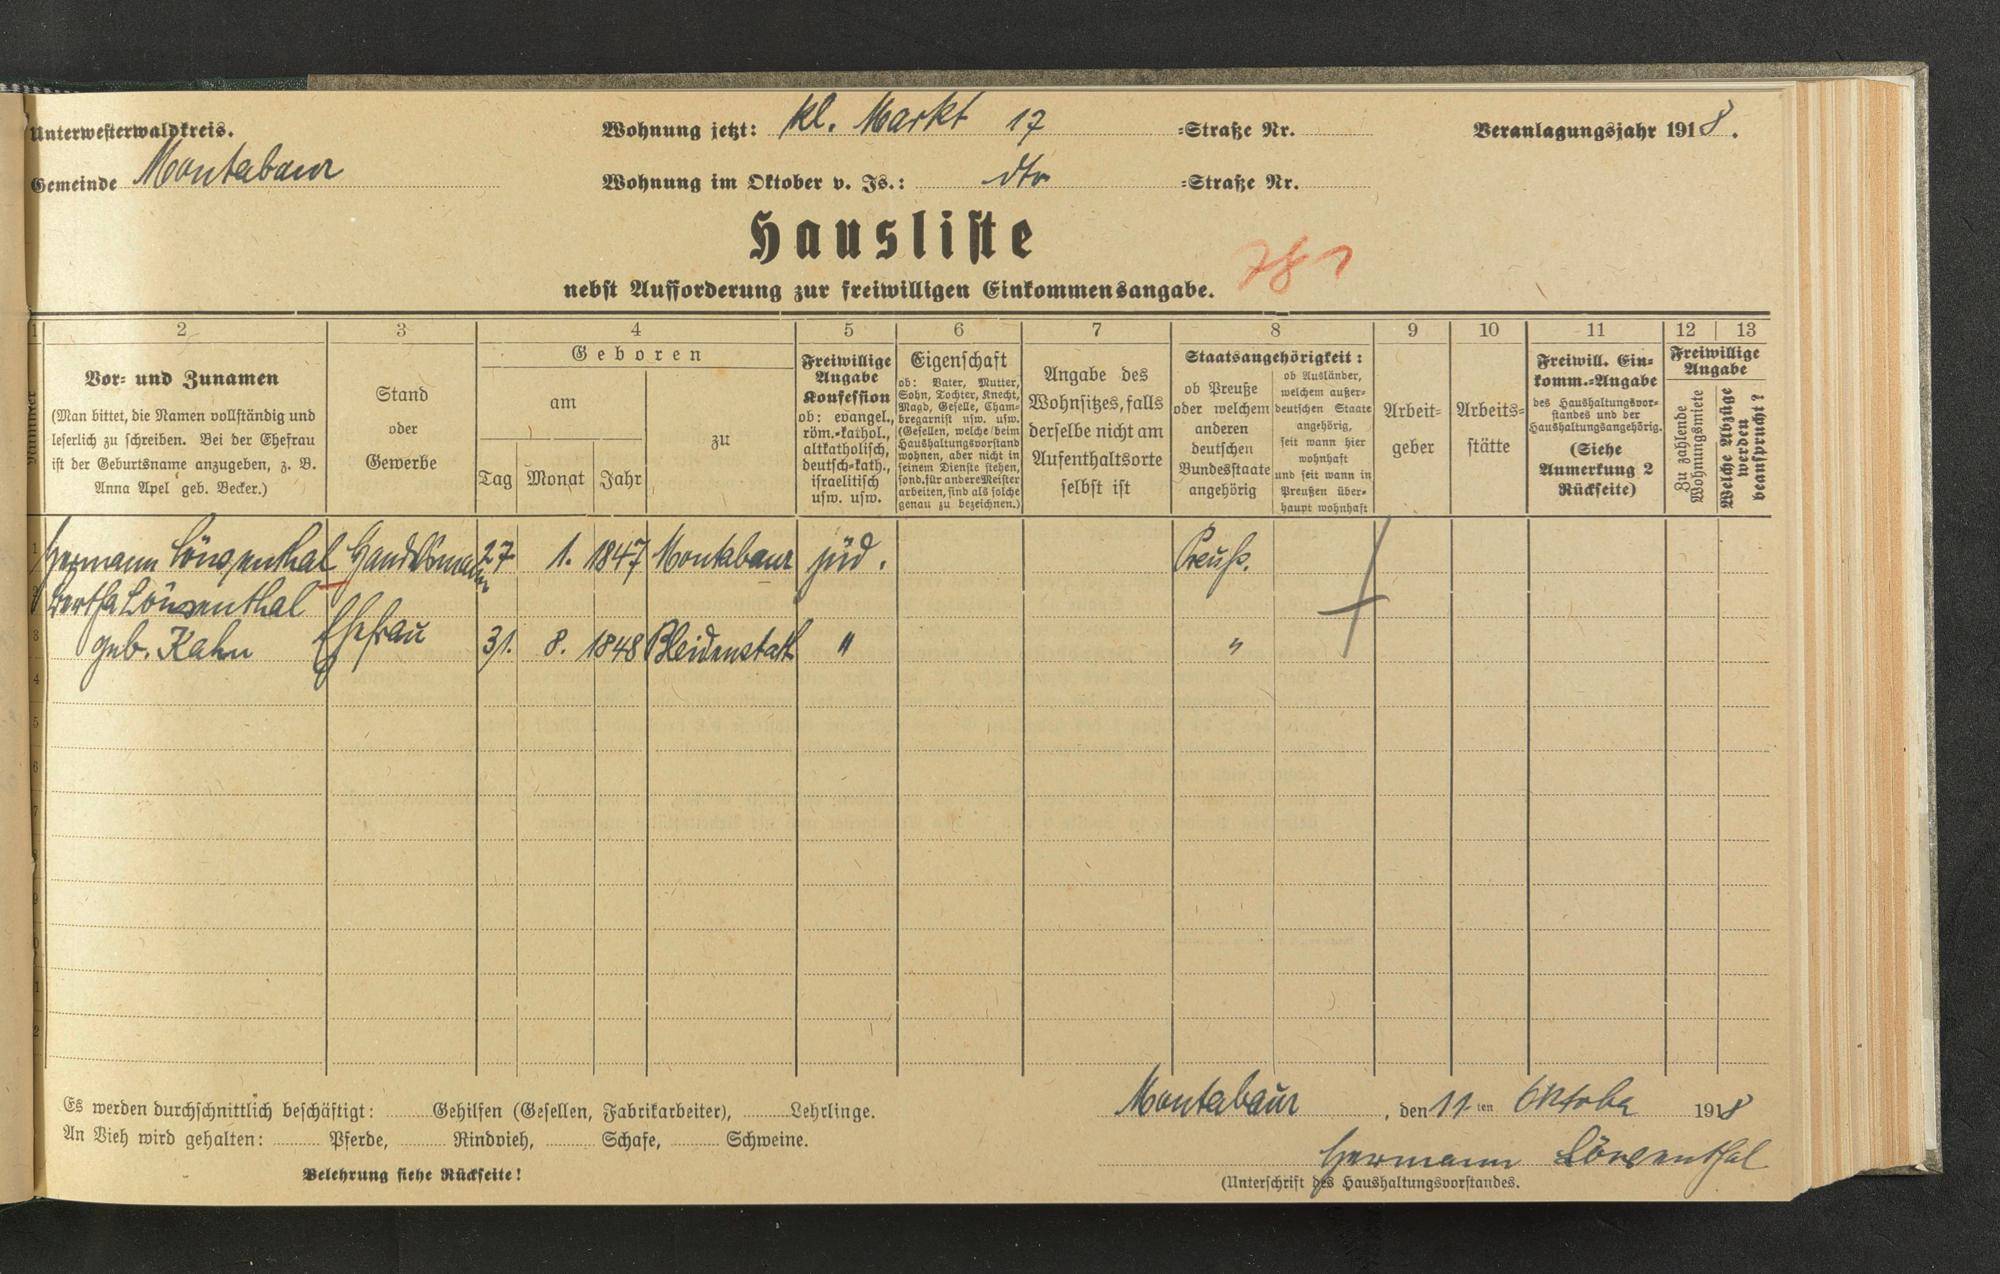 Unterwesterwaldkreis.
Wohnung jetzt: kl. Markt 17 =Straße Nr.
Veranlagungsjahr 1918.
Gemeinde Montabaur
Wohnung im Oktober v. Js.: dto =Straße Nr.
Hausliste
781
nebst Aufforderung zur freiwilligen Einkommensangabe.
1 2 3 4 5 6 7 8 9 10 11 12 13
Nummer
Vor- und Zunamen
(Man bittet, die Namen vollständig und
leserlich zu schreiben. Bei der Ehefrau
ist der Geburtsname anzugeben, z. B.
Anna Apel geb. Becker.)
Stand
oder
Gewerbe
Geboren
am
Tag Monat Jahr
zu
Freiwillige
Angabe
Konfession
ob: evangel.,
röm.-kathol.,
altkatholisch,
deutsch-kath.,
israelitisch
usw. usw.
Eigenschaft
ob: Vater, Mutter,
Sohn, Tochter, Knecht,
Magd, Geselle, Cham-
bregarnist usw. usw.
(Gesellen, welche beim
Haushaltungsvorstand
wohnen, aber nicht in
seinem Dienste stehen,
sond. für andere Meister
arbeiten, sind als solche
genau zu bezeichnen.)
Angabe des
Wohnsitzes, falls
derselbe nicht am
Aufenthaltsorte
selbst ist
Staatsangehörigkeit:
ob Preuße
oder welchem
anderen
deutschen
Bundesstaate
angehörig
ob Ausländer,
welchem außer-
deutschen Staate
angehörig,
seit wann hier
wohnhaft
und seit wann in
Preußen über-
haupt wohnhaft
Arbeit-
geber
Arbeits-
stätte
Freiwill. Ein-
komm.-Angabe
des Haushaltungsvor-
standes und der
Haushaltungsangehörig.
(Siehe
Anmerkung 2
Rückseite)
Freiwillige
Angabe
Zu zahlende
Wohnungsmiete
Welche Abzüge
werden
beansprucht?
1 Hermann Löwenthal Handelsmann 27 1. 1847 Montabaur jüd. Preuß.
2 Bertha Löwenthal
3 geb. Kahn Ehefrau 31. 8. 1848 Bleidenstath " "
4
5
6
7
9
0
1
2
Es werden durchschnittlich beschäftigt: Gehilfen (Gesellen, Fabrikarbeiter), Lehrlinge.
An Vieh wird gehalten: Pferde, Rindvieh, Schafe, Schweine.
Belehrung siehe Rückseite!
Montabaur, den 11.ten Oktober 1918
Hermann Löwenthal
(Unterschrift des Haushaltungsvorstandes.